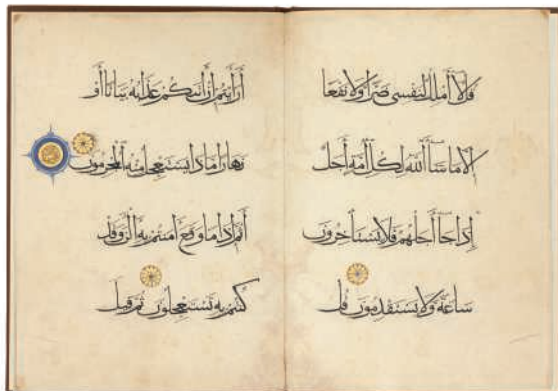 قل لا أملك لنفسي ضرا ولا نفعا
إلا ما شاء الله لكل أمة أجل
إذا جاء أجلهم فلا يستأخرون
ساعة ولا يستقدمون قل
أرأيتم إن أتاكم عذابه بياتا أو
نهارا ماذا يستعجل منه المجرمون
أثم إذا ما وقع آمنتم به آلآن وقد
كنتم به تستعجلون ثم قيل